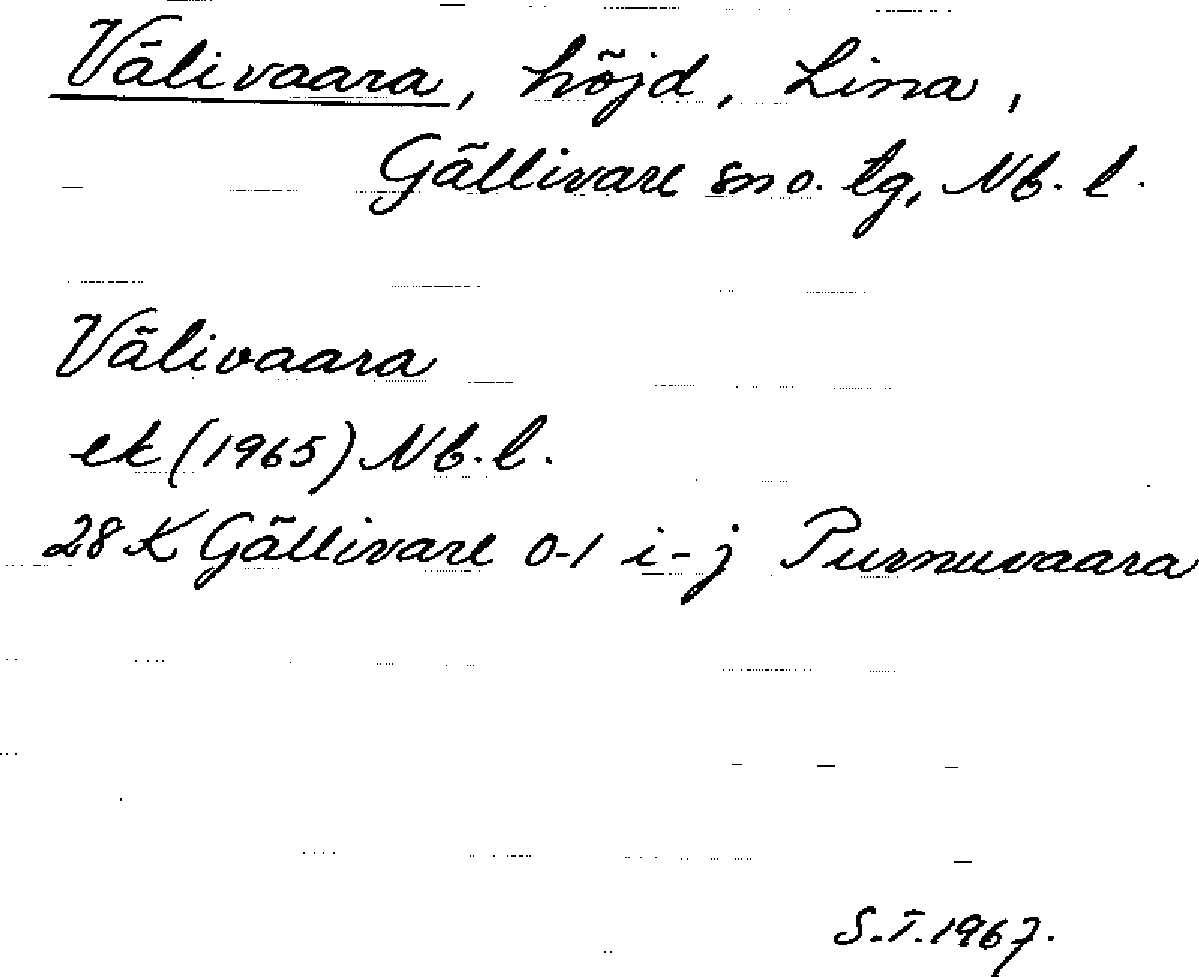 Välivaara, höjd, Lina,
Gällivare sn o. tg, Nb. l.
Välivaara
ek (1965) Nb. l.
28 K Gällivare 0-1 i-j Purnuvaara
S.T. 1967.